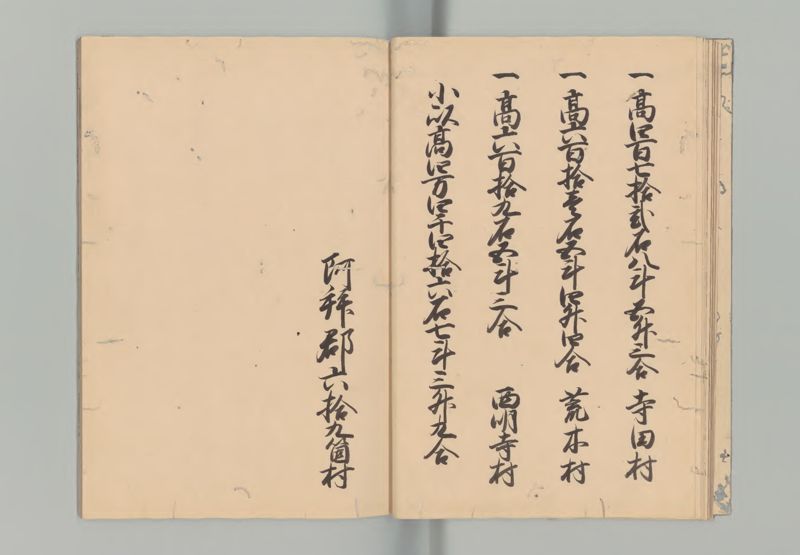 一高四百七拾弐石八斗五升三合 寺田村
一高六百拾壱石五斗四升四合 荒木村
一高六百拾九石五斗三合 西明寺村
小以高四万四千四拾六石七斗三升九合
阿拝郡六拾九箇村